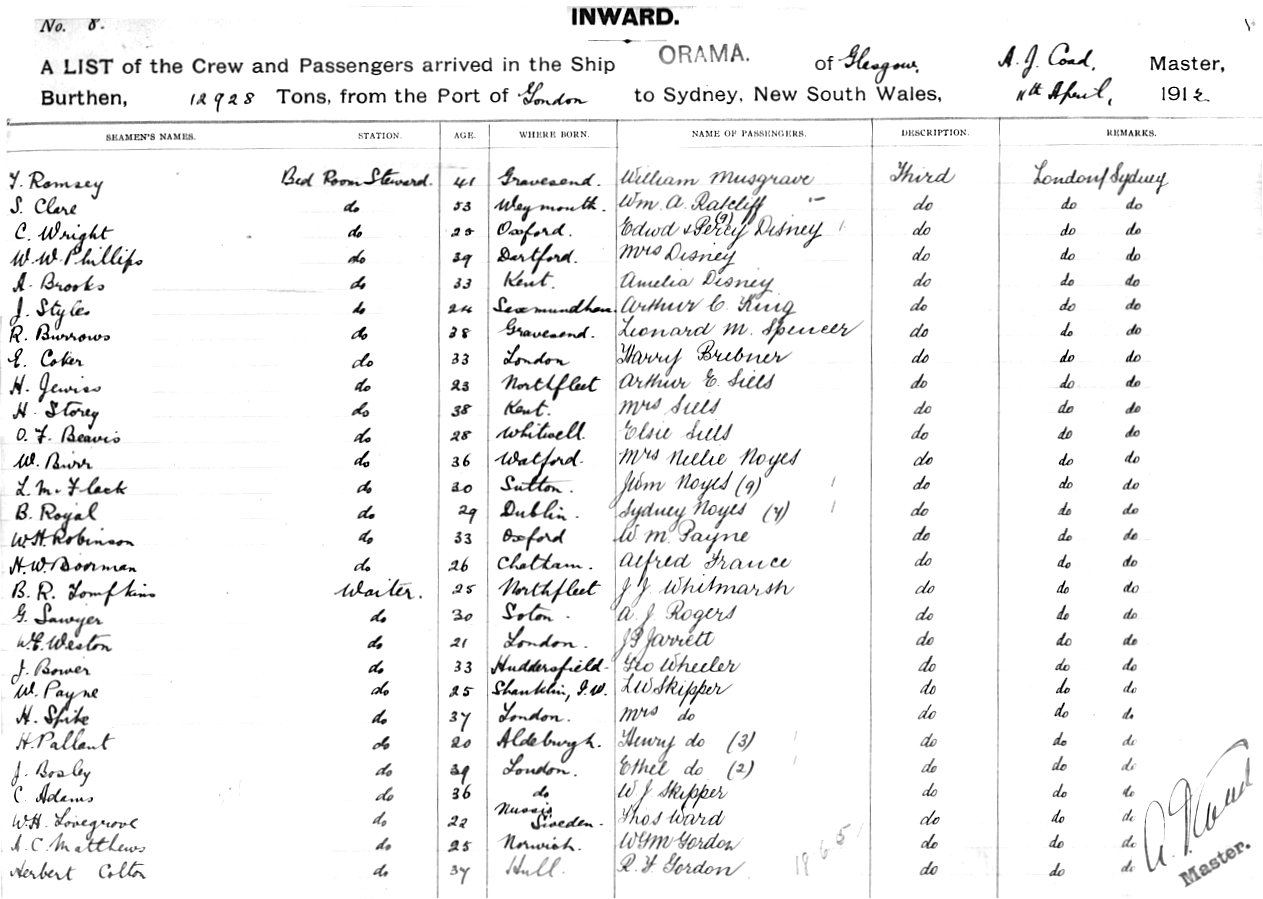 No. 8.
INWARD.
A LIST of the Crew and Passengers arrived in the Ship ORAMA. of Glasgow, A. J. Coad, Master,
Burthen, 12928 Tons, from the Port of London to Sydney, New South Wales, 11th April, 1912
SEAMEN'S NAMES. STATION. AGE. WHERE BORN. NAME OF PASSENGERS. DESCRIPTION. REMARKS.
F. Ramsey Bed Room Steward. 41 Gravesend. William Musgrave Third London/Sydney
S. Clare do 53 Weymouth. Wm. A. Ratcliff do do do
C. Wright do 25 Oxford. Edwd & Percy (9) Disney do do do
W. W. Phillips do 39 Dartford. Mrs Disney do do do
A. Brooks do 33 Kent. Amelia Disney do do do
J. Styles do 24 Saxmundham. Arthur C. King do do do
R. Burrows do 38 Gravesend. Leonard M. Spencer do do do
E. Coker do 33 London Harry Brebner do do do
H. Jewiss do 23 Northfleet Arthur E. Sills do do do
H. Storey do 38 Kent. Mrs Sills do do do
O. F. Beavis do 28 Whitwell. Elsie Sills do do do
W. Burr do 36 Watford. Mrs Nellie Noyes do do do
L. M. Flack do 30 Sutton. Wm Noyes (9) do do do
B. Royal do 29 Dublin. Sydney Noyes (7) do do do
W. H. Robinson do 33 Oxford W. M. Payne do do do
H. W. Boorman do 26 Chatham. Alfred France do do do
B. R. Tompkins Waiter. 25 Northfleet J J Whitmarsh do do do
G. Sawyer do 30 Soton. A. J Rogers do do do
W. E. Weston do 21 London. J P Jarrett do do do
J. Bower do 33 Huddersfield. Geo Wheeler do do do
W. Payne do 25 Shanklin, I.W. L W Skipper do do do
H. Spike do 37 London. Mrs do do do do
H. Pallant do 20 Aldeburgh. Henry do (3) do do do
J. Bosley do 39 London. Ethel do (2) do do do
C. Adams do 36 do W J Skipper do do do
W. H. Lovegrove do 22 Sweden. Thos Ward do do do
A. C. Matthews do 25 Norwich. W G M Gordon do do do
Herbert Colton do 37 Hull. R. F Gordon do do do
A. J. Coad
Master.